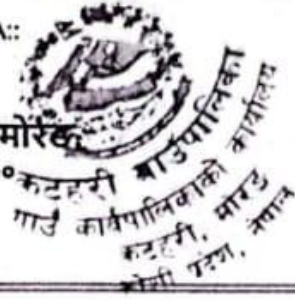 मोरङ
कटहरी गाउँपालिका
गाउँ कार्यपालिकाको कार्यालय
कटहरी, मोरङ
कोशी प्रदेश, नेपाल